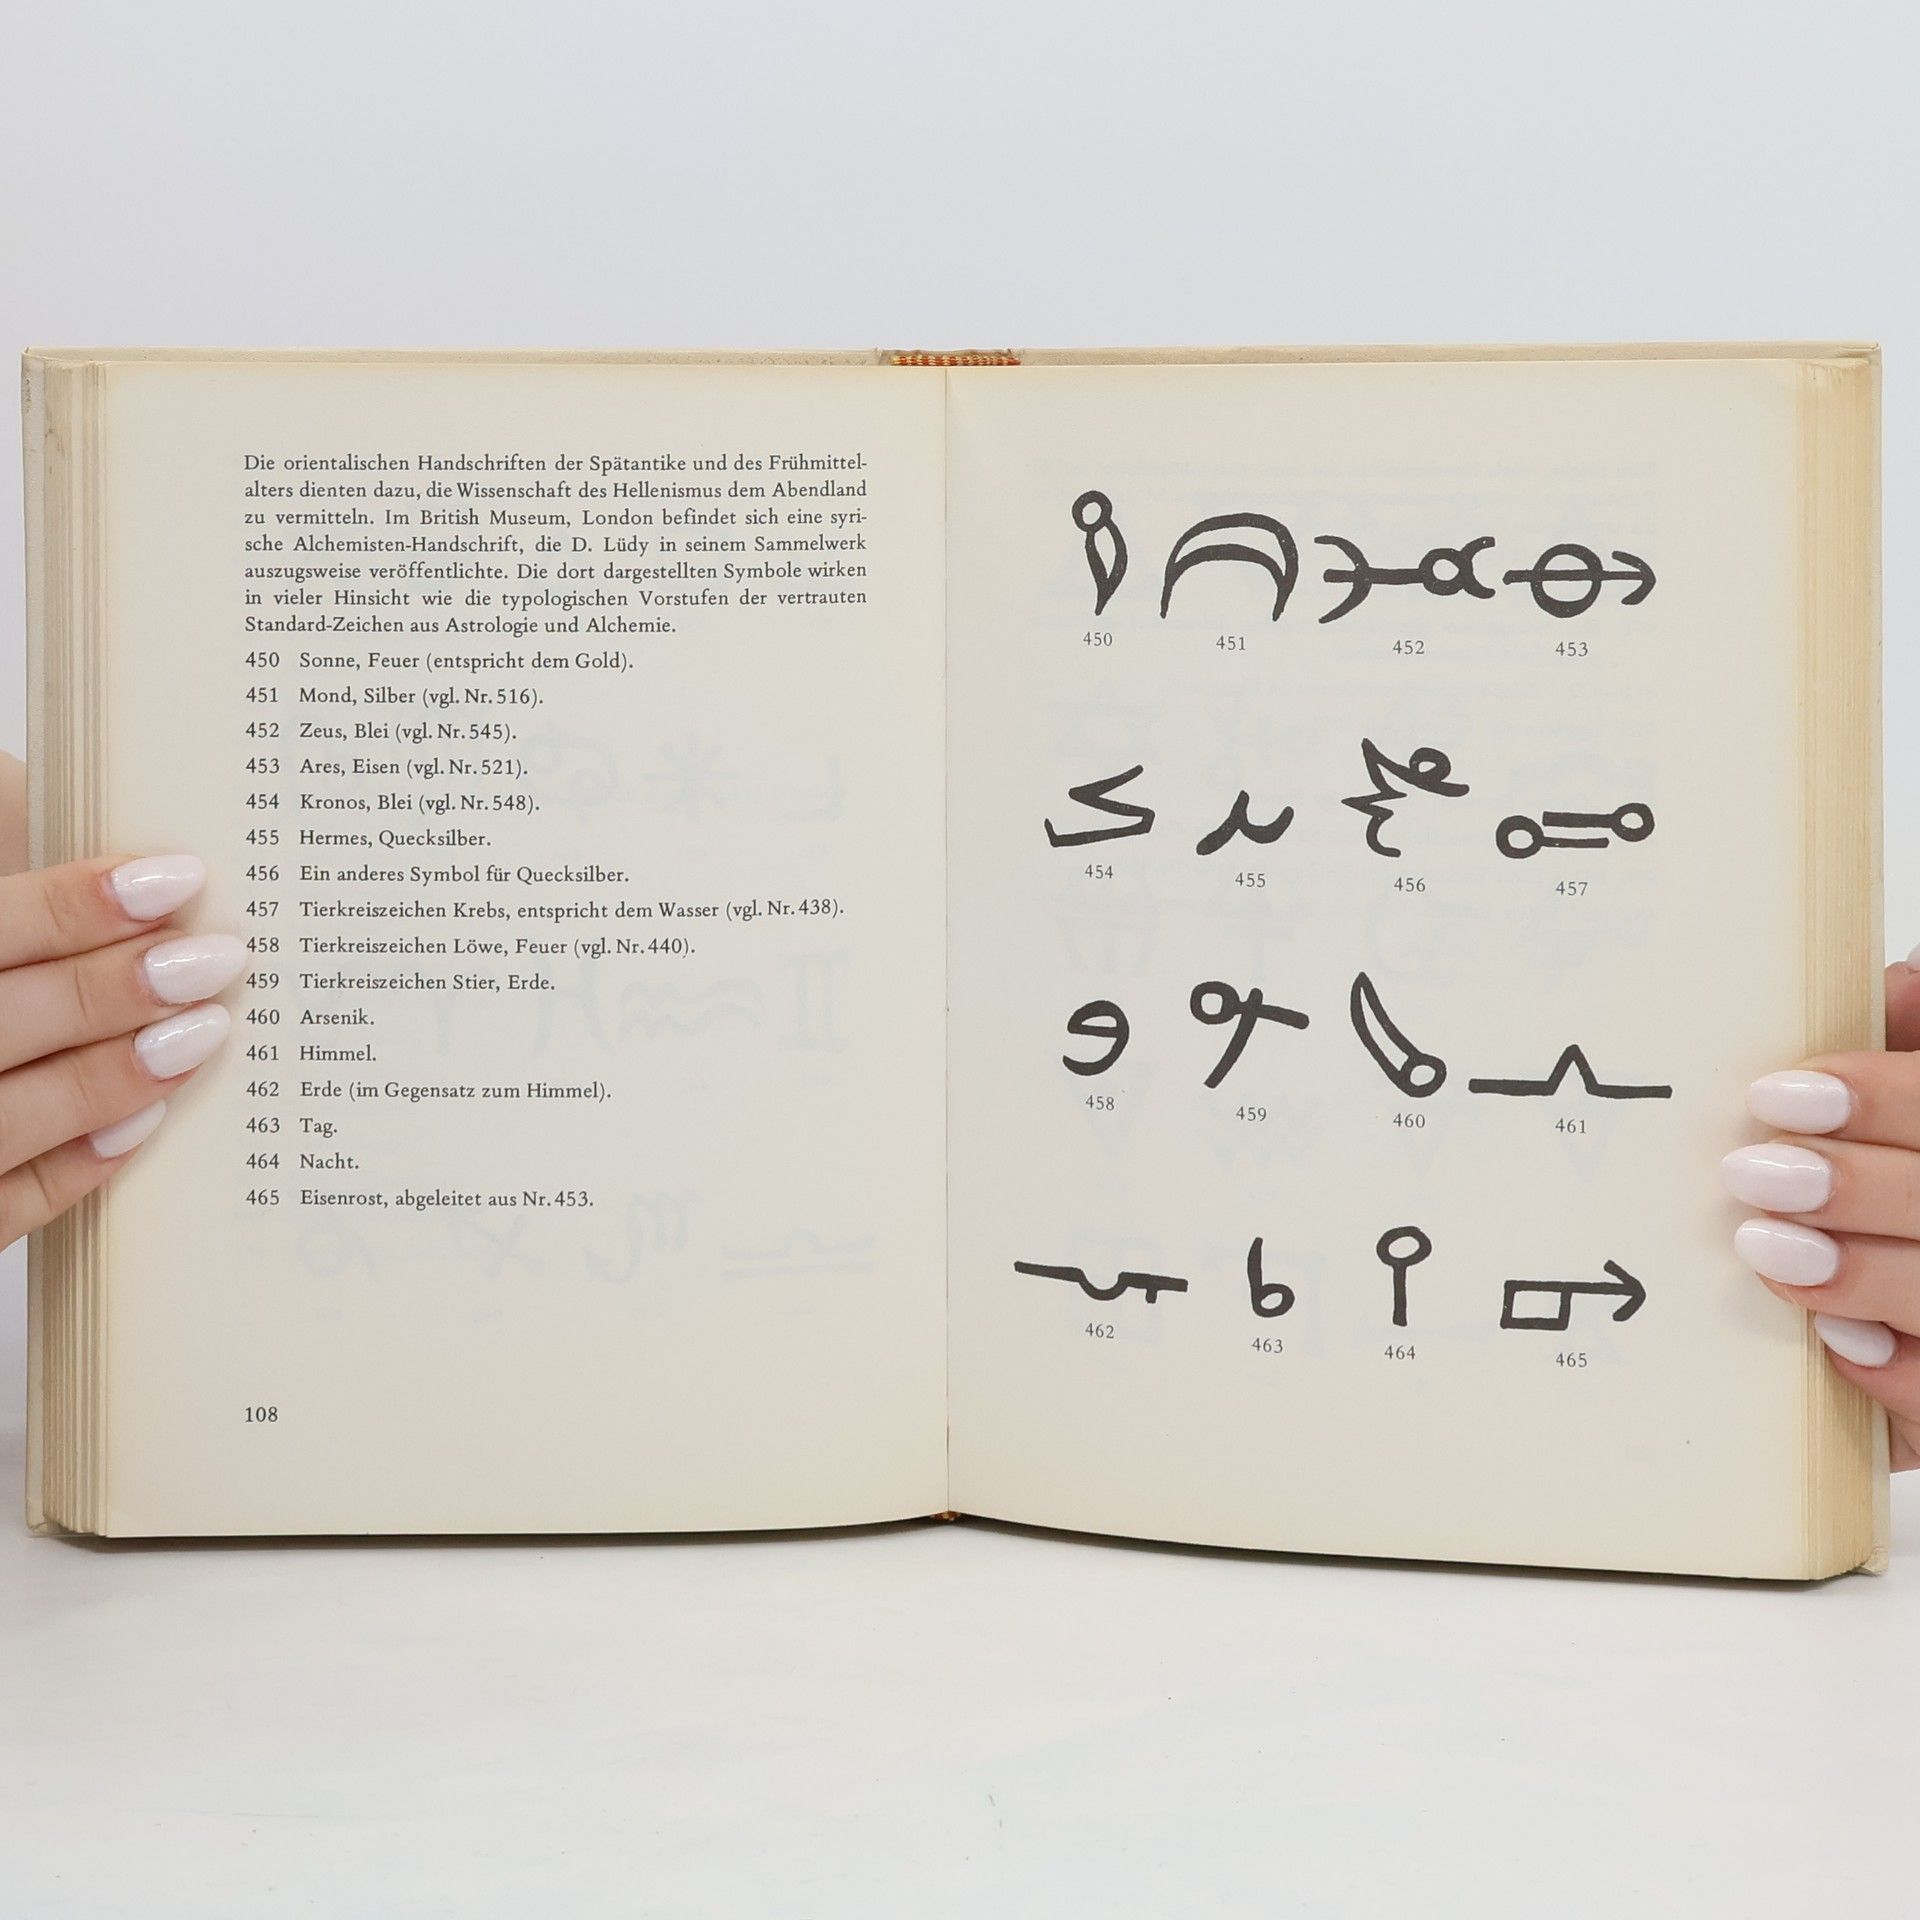 Die orientalischen Handschriften der Spätantike und des Frühmittel-
alters dienten dazu, die Wissenschaft des Hellenismus dem Abendland
zu vermitteln. Im British Museum, London befindet sich eine syri-
sche Alchemisten-Handschrift, die D. Lüdy in seinem Sammelwerk
auszugsweise veröffentlichte. Die dort dargestellten Symbole wirken
in vieler Hinsicht wie die typologischen Vorstufen der vertrauten
Standard-Zeichen aus Astrologie und Alchemie.
450 Sonne, Feuer (entspricht dem Gold).
451 Mond, Silber (vgl. Nr. 516).
452 Zeus, Blei (vgl. Nr. 545).
453 Ares, Eisen (vgl. Nr. 521).
454 Kronos, Blei (vgl. Nr. 548).
455 Hermes, Quecksilber.
456 Ein anderes Symbol für Quecksilber.
457 Tierkreiszeichen Krebs, entspricht dem Wasser (vgl. Nr. 438).
458 Tierkreiszeichen Löwe, Feuer (vgl. Nr. 440).
459 Tierkreiszeichen Stier, Erde.
460 Arsenik.
461 Himmel.
462 Erde (im Gegensatz zum Himmel).
463 Tag.
464 Nacht.
465 Eisenrost, abgeleitet aus Nr. 453.
108
450 451 452 453
454 455 456 457
458 459 460 461
462 463 464 465